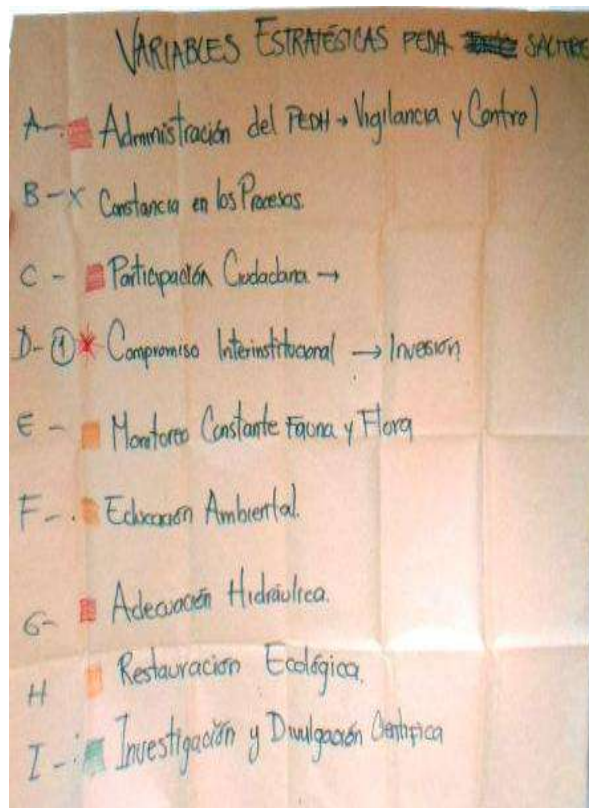 VARIABLES ESTRATÉGICAS PEDH SALITRE
A-. Administración del PEDH → Vigilancia y Control
B-X Constancia en los Procesos.
C - Participación Ciudadana →
D- ① * Compromiso Interinstitucional → Inversión
E - Monitoreo Constante Fauna y Flora
F-. Educación Ambiental.
G- Adecuación Hidráulica.
H Restauración Ecológica.
I -. Investigación y Divulgación Científica